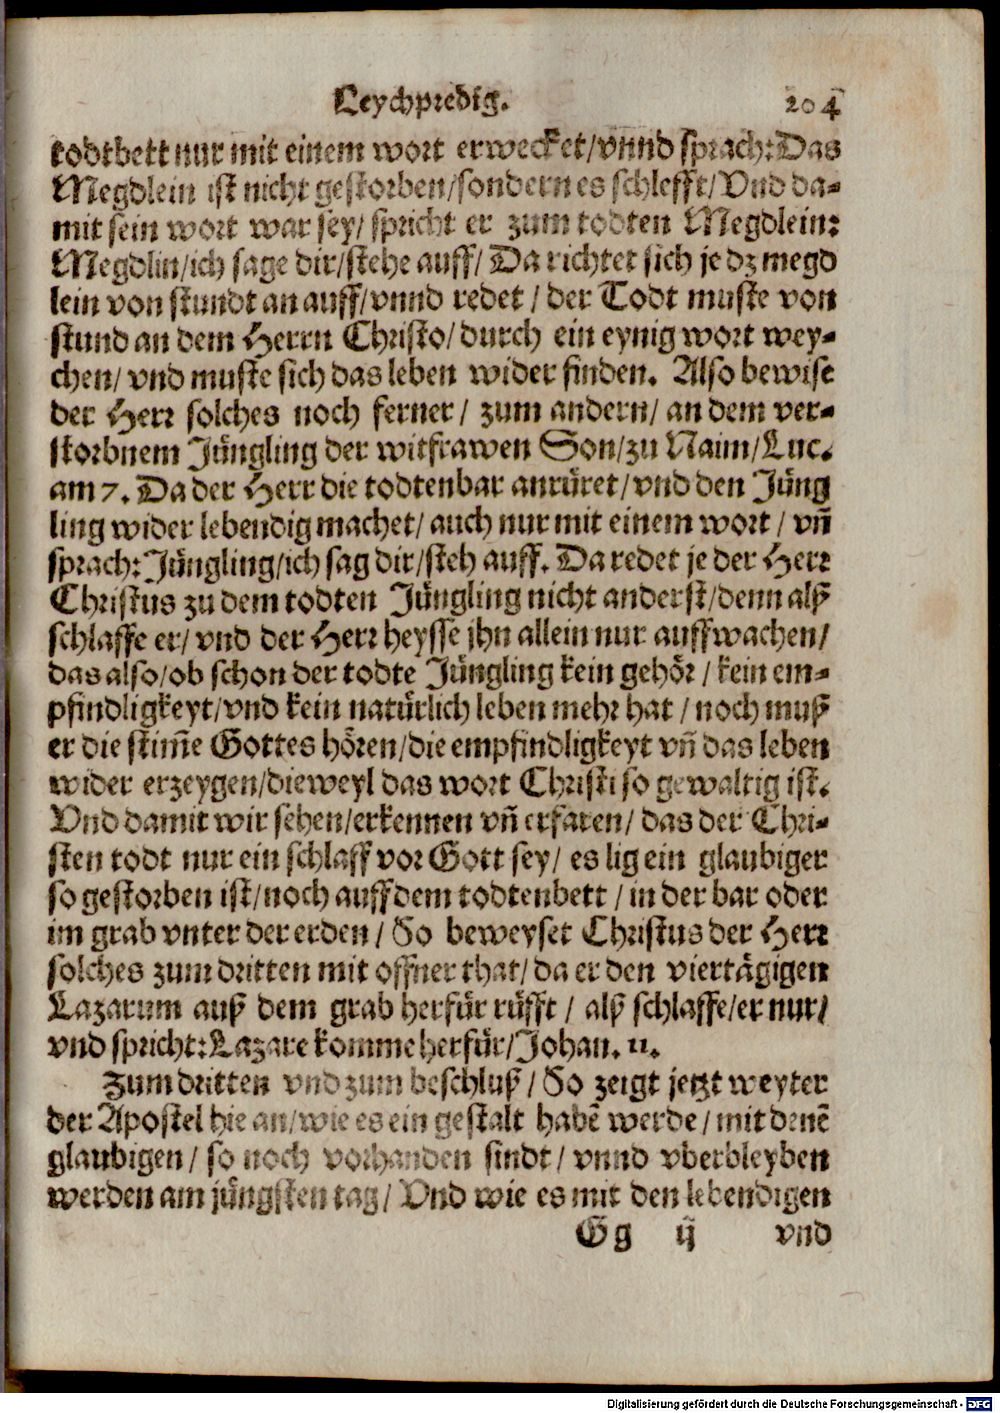 Leychpredig. 204
todtbett nur mit einem wort erwecket/vnnd sprach: Das
Megdlein ist nicht gestorben/sondern es schlefft/Vnd da-
mit sein wort war sey/ spricht er zum todten Megdlein:
Megdlin/ich sage dir/stehe auff/ Da richtet sich je dz megd
lein von stundt an auff/vnnd redet / der Todt muste von
stund an dem Herrn Christo/ durch ein eynig wort wey-
chen/ vnd muste sich das leben wider finden. Also bewise
der Herr solches noch ferner/ zum andern/ an dem ver-
storbnem Jüngling der witfrawen Son/zu Naim/Luc.
am 7. Da der Herr die todtenbar anrüret/vnd den Jüng
ling wider lebendig machet/ auch nur mit einem wort / vñ
sprach: Jüngling/ich sag dir/steh auff. Da redet je der Herr
Christus zu dem todten Jüngling nicht anderst/denn alß
schlaffe er/ vnd der Herr heysse jhn allein nur auffwachen/
das also/ob schon der todte Jüngling kein gehör / kein em-
pfindligkeyt/vnd kein natürlich leben mehr hat / noch muß
er die stim̃e Gottes hören/die empfindligkeyt vñ das leben
wider erzeygen/dieweyl das wort Christi so gewaltig ist.
Vnd damit wir sehen/erkennen vñ erfaren/ das der Chri-
sten todt nur ein schlaff vor Gott sey/ es lig ein glaubiger
so gestorben ist/noch auff dem todtenbett / in der bar oder
im grab vnter der erden / So beweyset Christus der Herr
solches zum dritten mit offner that/ da er den viertägigen
Lazarum auß dem grab herfür rüfft / alß schlaffe/er nur/
vnd spricht: Lazare komme herfür/Johan. 11.
Zum dritten vnd zum beschluß / So zeigt jetzt weyter
der Apostel hie an/wie es ein gestalt habẽ werde / mit denẽ
glaubigen / so noch vorhanden sindt / vnnd vberbleyben
werden am jüngsten tag/ Vnd wie es mit den lebendigen
Gg ij vnd
Digitalisierung gefördert durch die Deutsche Forschungsgemeinschaft - DFG